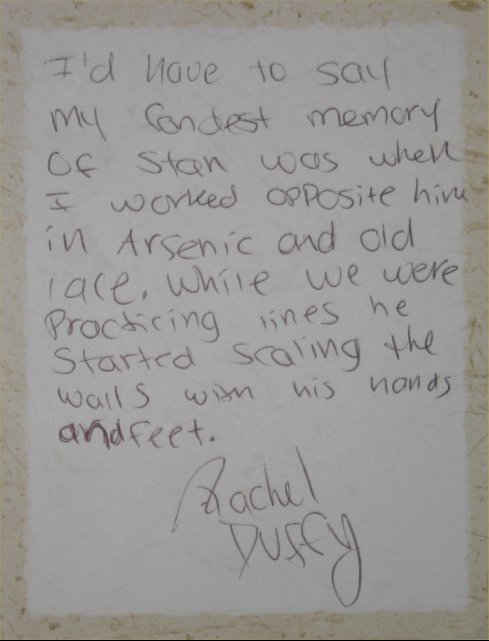 I'd have to say
my fondest memory
of Stan was when
I worked opposite him
in Arsenic and old
lace. While we were
Practicing lines he
Started scaling the
walls with his hands
and feet.
Rachel
Duffy